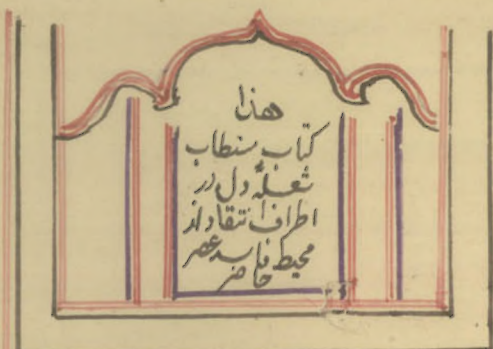 هذا
کتاب مستطاب
شعلهٔ دل در
اطراف انتقاد از
محیط فاسد عصر
حاضر